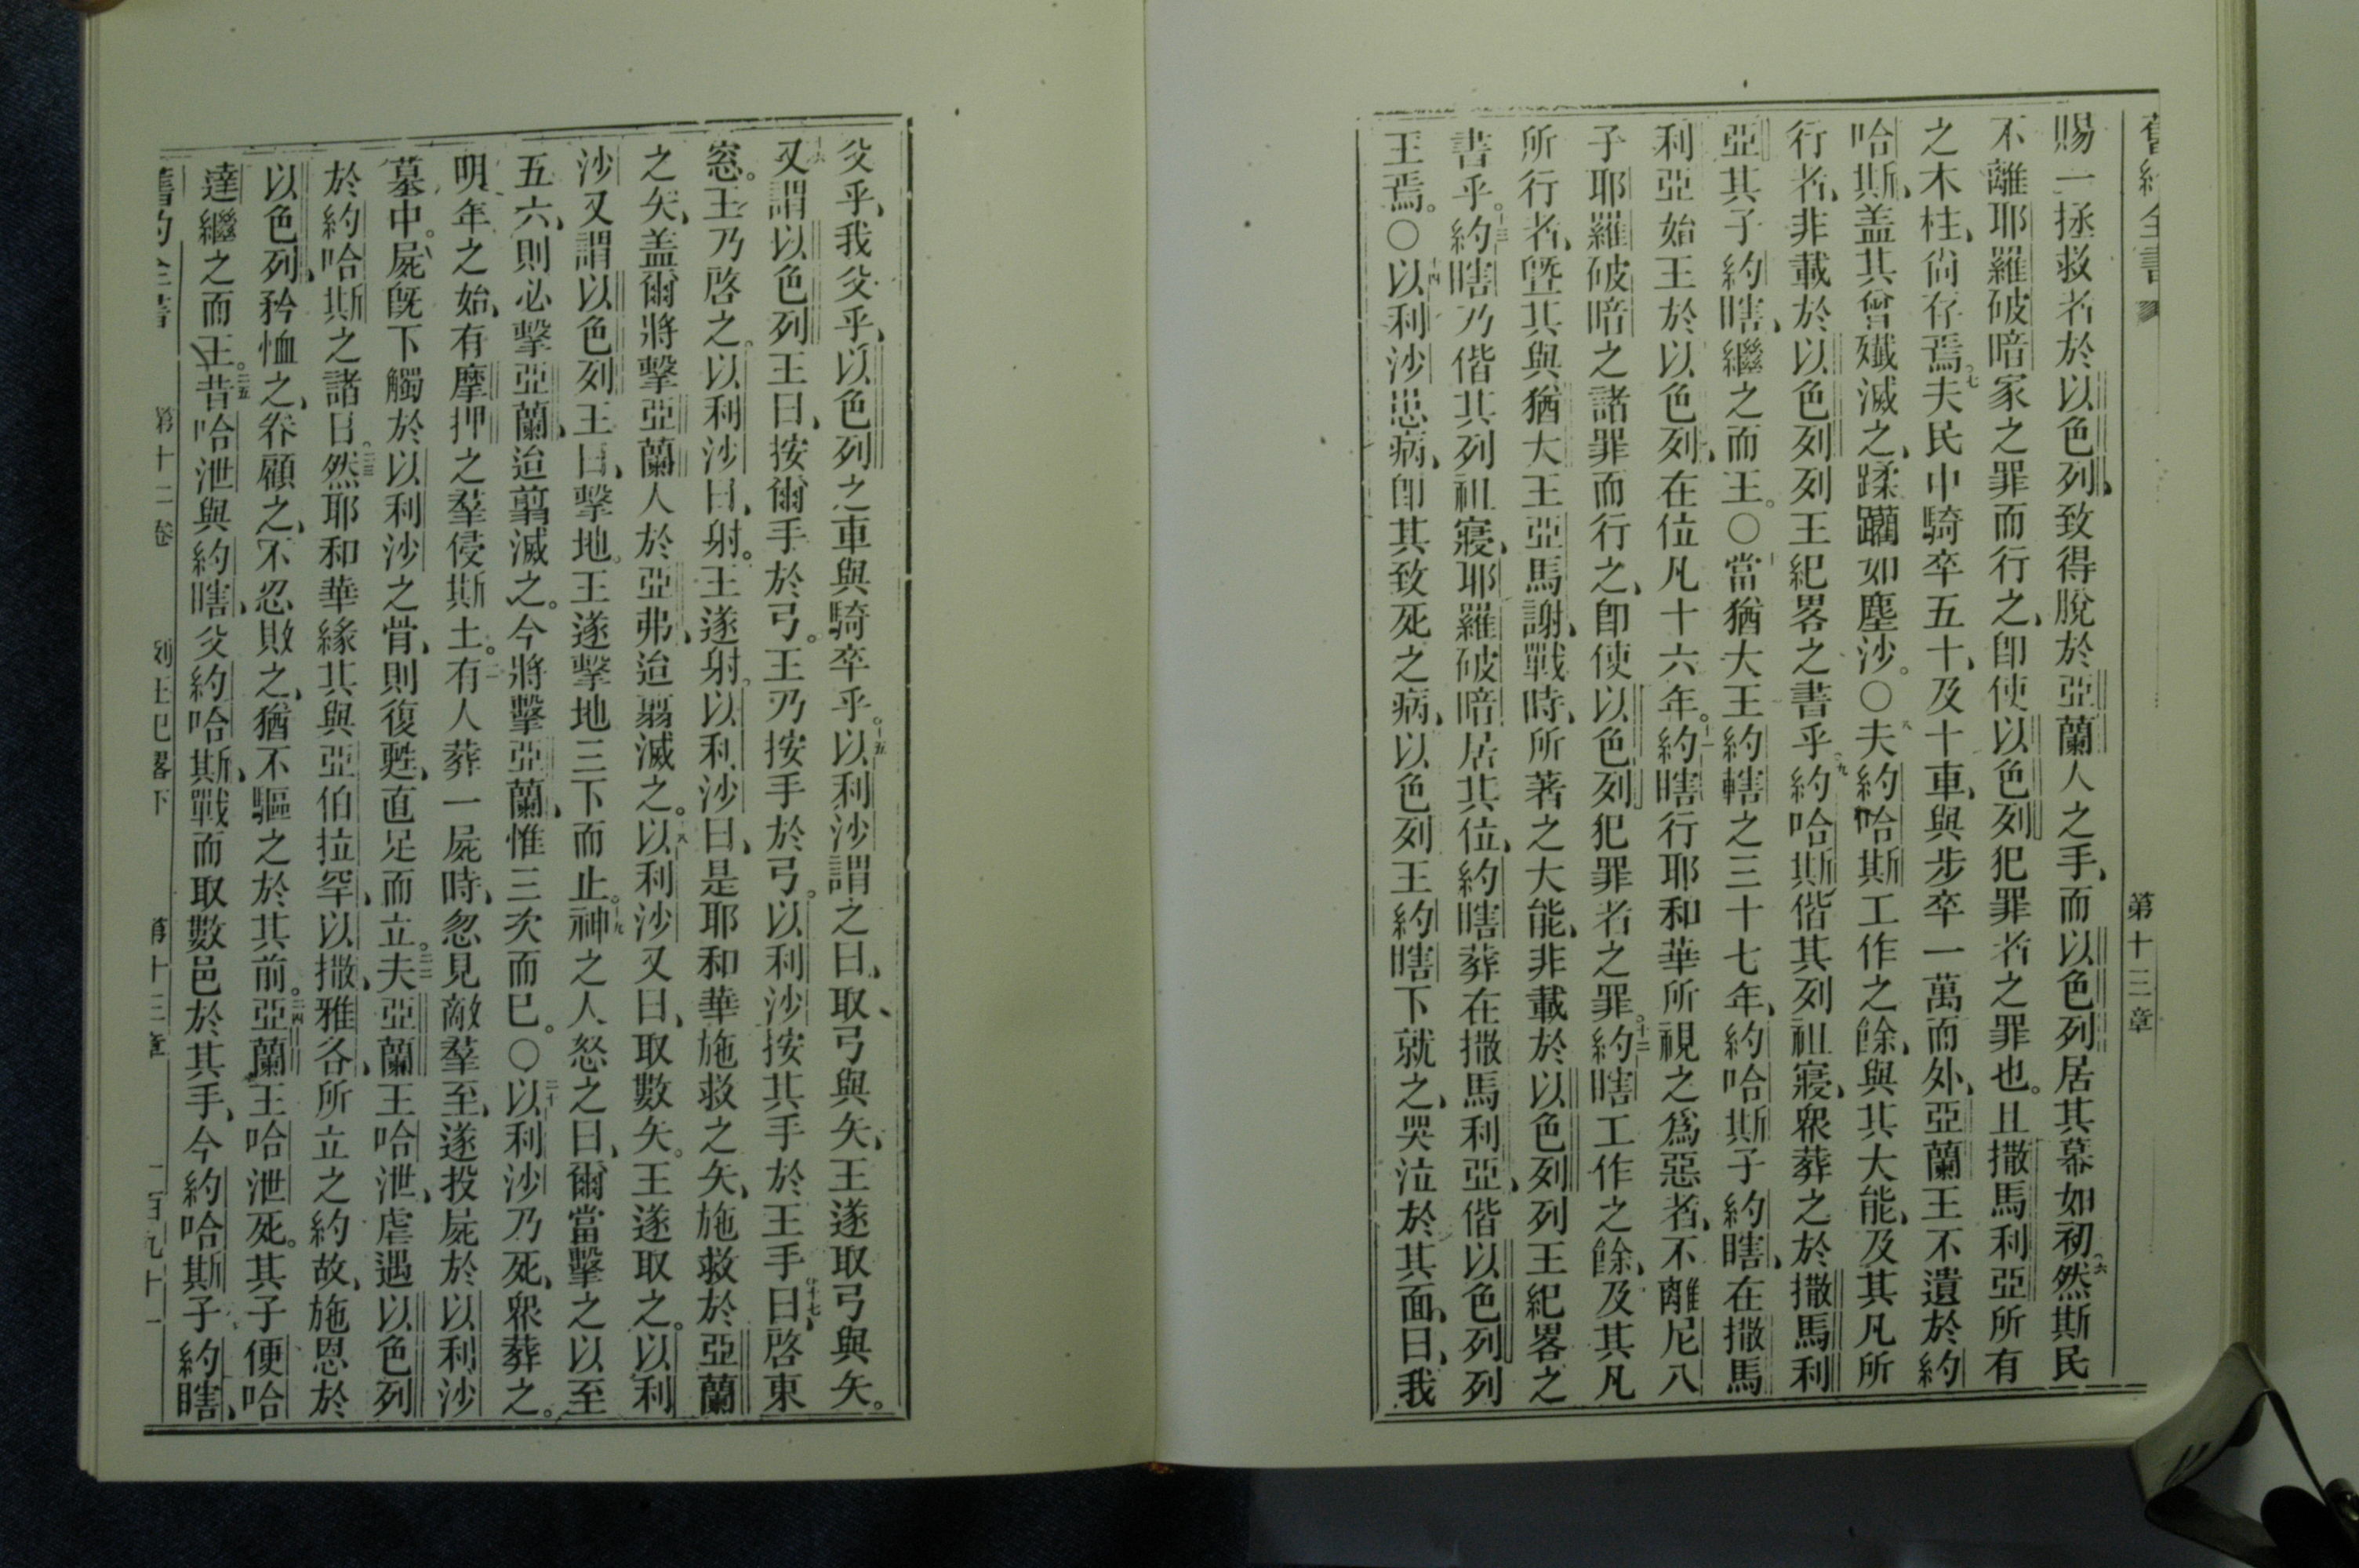 舊約全書 第十三章
賜一拯救者於以色列、致得脫於亞蘭人之手、而以色列居其幕如初、六然斯民
不離耶羅破暗家之罪而行之、卽使以色列犯罪者之罪也。且撒馬利亞所有
之木柱、尙存焉。七夫民中騎卒五十、及十車、與步卒一萬而外、亞蘭王不遺於約
哈斯、盖其曾殲滅之、蹂躪如塵沙。〇八夫約哈斯工作之餘、與其大能、及其凡所
行者、非載於以色列列王紀畧之書乎、九約哈斯偕其列祖寢、衆葬之於撒馬利
亞、其子約瞎、繼之而王。〇十當猶大王約轄之三十七年、約哈斯子約瞎、在撒馬
利亞始王於以色列、在位凡十六年。十一約瞎行耶和華所視之爲惡者、不離尼八
子耶羅破暗之諸罪而行之、卽使以色列犯罪者之罪。十二約瞎工作之餘、及其凡
所行者、曁其與猶大王亞馬謝戰時、所著之大能、非載於以色列列王紀畧之
書乎。十三約瞎乃偕其列祖寢、耶羅破暗居其位、約瞎葬在撒馬利亞、偕以色列列
王焉。〇十四以利沙患病、卽其致死之病、以色列王約瞎下就之、哭泣於其面、曰、我
父乎、我父乎、以色列之車與騎卒乎。十五以利沙謂之曰、取弓與矢、王遂取弓與矢。
十六又謂以色列王曰、按爾手於弓。王乃按手於弓。以利沙按其手於王手、十七曰、啓東
窓。王乃啓之。以利沙曰、射。王遂射。以利沙曰、是耶和華施救之矢、施救於亞蘭
之矢、盖爾將擊亞蘭人於亞弗、迨翦滅之。十八以利沙又曰、取數矢。王遂取之。以利
沙又謂以色列王曰、擊地。王遂擊地三下而止。十九神之人怒之曰、爾當擊之以至
五六、則必擊亞蘭、迨翦滅之。今將擊亞蘭、惟三次而已。〇二十以利沙乃死、衆葬之。
明年之始、有摩押之羣侵斯土。二一有人葬一屍時、忽見敵羣至、遂投屍於以利沙
墓中。屍旣下觸於以利沙之骨、則復甦、直足而立。二二夫亞蘭王哈泄、虐遇以色列
於約哈斯之諸日。二三然耶和華緣其與亞伯拉罕、以撒、雅各、所立之約故、施恩於
以色列、矜恤之、眷顧之、不忍敗之、猶不驅之於其前。二四亞蘭王哈泄死。其子便哈
達繼之而王。二五昔哈泄與約瞎、父約哈斯、戰而取數邑於其手、今約哈斯子約瞎、
舊約全書 第十二卷 列王紀畧下 第十三章 一百九十一